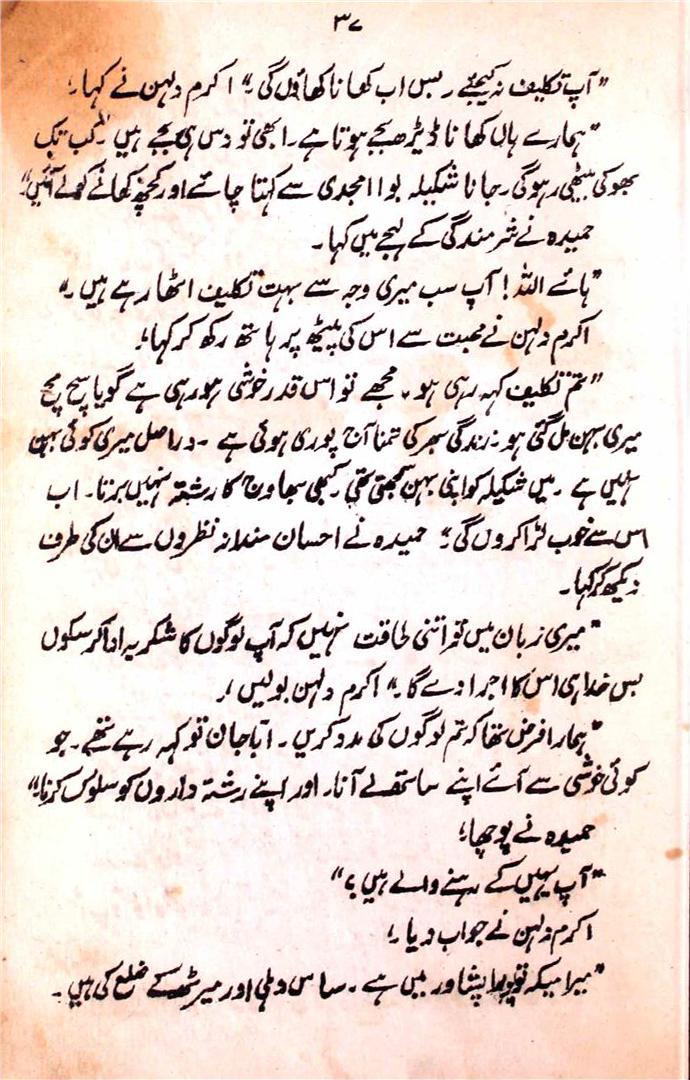 ۳۷
"آپ تکلیف نہ کیجئے۔ بس اب کھانا کھاؤں گی۔" اکرم دلہن نے کہا؛
"ہمارے ہاں کھانا ڈیڑھ بجے ہوتا ہے۔ ابھی تو دس ہی بجے ہیں۔ کب تک
بھوکی بیٹھی رہو گی۔ جانا شکیلہ بوا امجدی سے کہتا چائے اور کچھ کھانے کو لے آئیں"
حمیدہ نے شرمندگی کے لہجے میں کہا۔
"ہائے اللہ! آپ سب میری وجہ سے بہت تکلیف اٹھا رہے ہیں۔"
اکرم دلہن نے محبت سے اس کی پیٹھ پر ہاتھ رکھ کر کہا؛
"تم تکلیف کہہ رہی ہو۔ مجھے تو اس قدر خوشی ہو رہی ہے گویا سچ مچ
میری بہن مل گئی ہو۔ زندگی بھر کی تمنا آج پوری ہوئی ہے۔ دراصل میری کوئی بہن
نہیں ہے۔ میں شکیلہ کو اپنی بہن سمجھتی تھی۔ کبھی بھاوج کا رشتہ نہیں برتا۔ اب
اس سے خوب لڑا کروں گی۔" حمیدہ نے احسان مندانہ نظروں سے ان کی طرف
دیکھ کر کہا۔
"میری زبان میں تو اتنی طاقت نہیں کہ آپ لوگوں کا شکریہ ادا کر سکوں
بس خدا ہی اس کا اجر ادے گا۔" اکرم دلہن بولیں؛
"ہمارا فرض تھا کہ تم لوگوں کی مدد کریں۔ اباجان تو کہہ رہے تھے۔ جو
کوئی خوشی سے آئے اپنے ساتھ لے آنا۔ اور اپنے رشتہ داروں کو سلوک کرنا۔"
حمیدہ نے پوچھا؛
"آپ یہیں کے رہنے والے ہیں؟"
اکرم دلہن نے جواب دیا؛
"میرا میکہ تو پشاور میں ہے۔ ساس دہلی اور میرٹھ کے ضلع کی ہیں۔